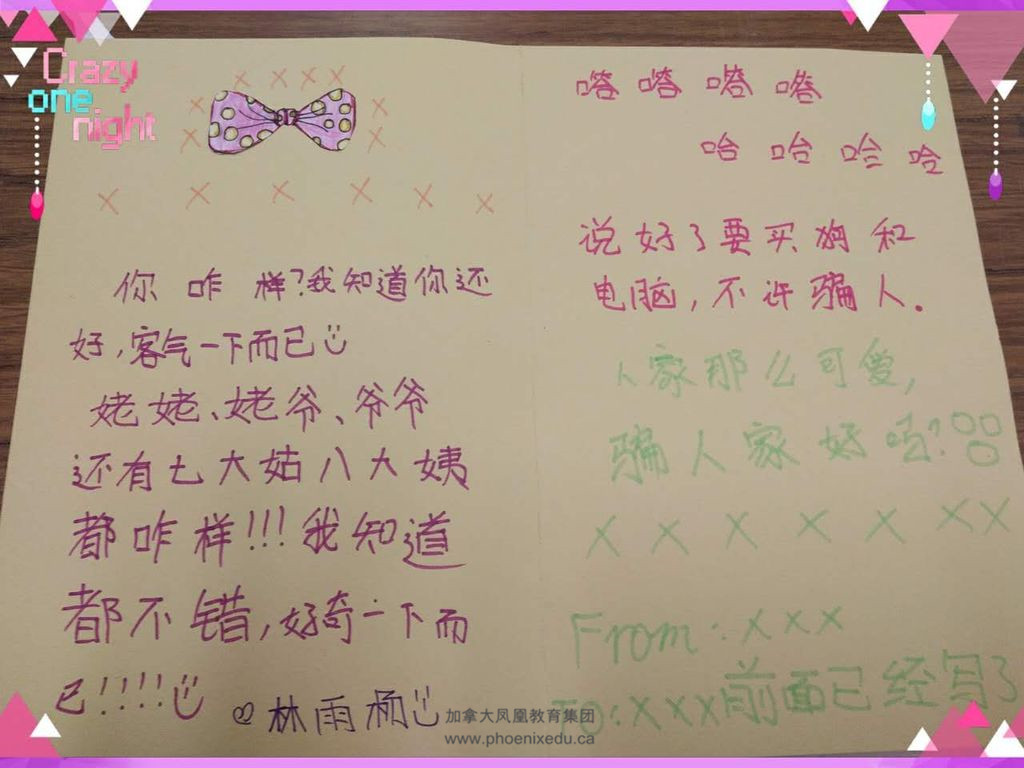 Crazy
one
night
× × × ×
× ×
× ×
× × × × × ×
你 咋 样?我知道你还
好,客气一下而已
姥姥、姥爷、爷爷
还有七大姑八大姨
都咋样!!!我知道
都不错,好奇一下而
已!!!!
林雨
嗒 嗒 嗒 嗒
哈 哈 哈 哈
说好了要买狗和
电脑,不许骗人.
人家那么可爱,
骗人家好吗?
× × × × × × ×
From: xxx
To: xxx前面已经写了
加拿大凤凰教育集团
www.phoenixedu.ca